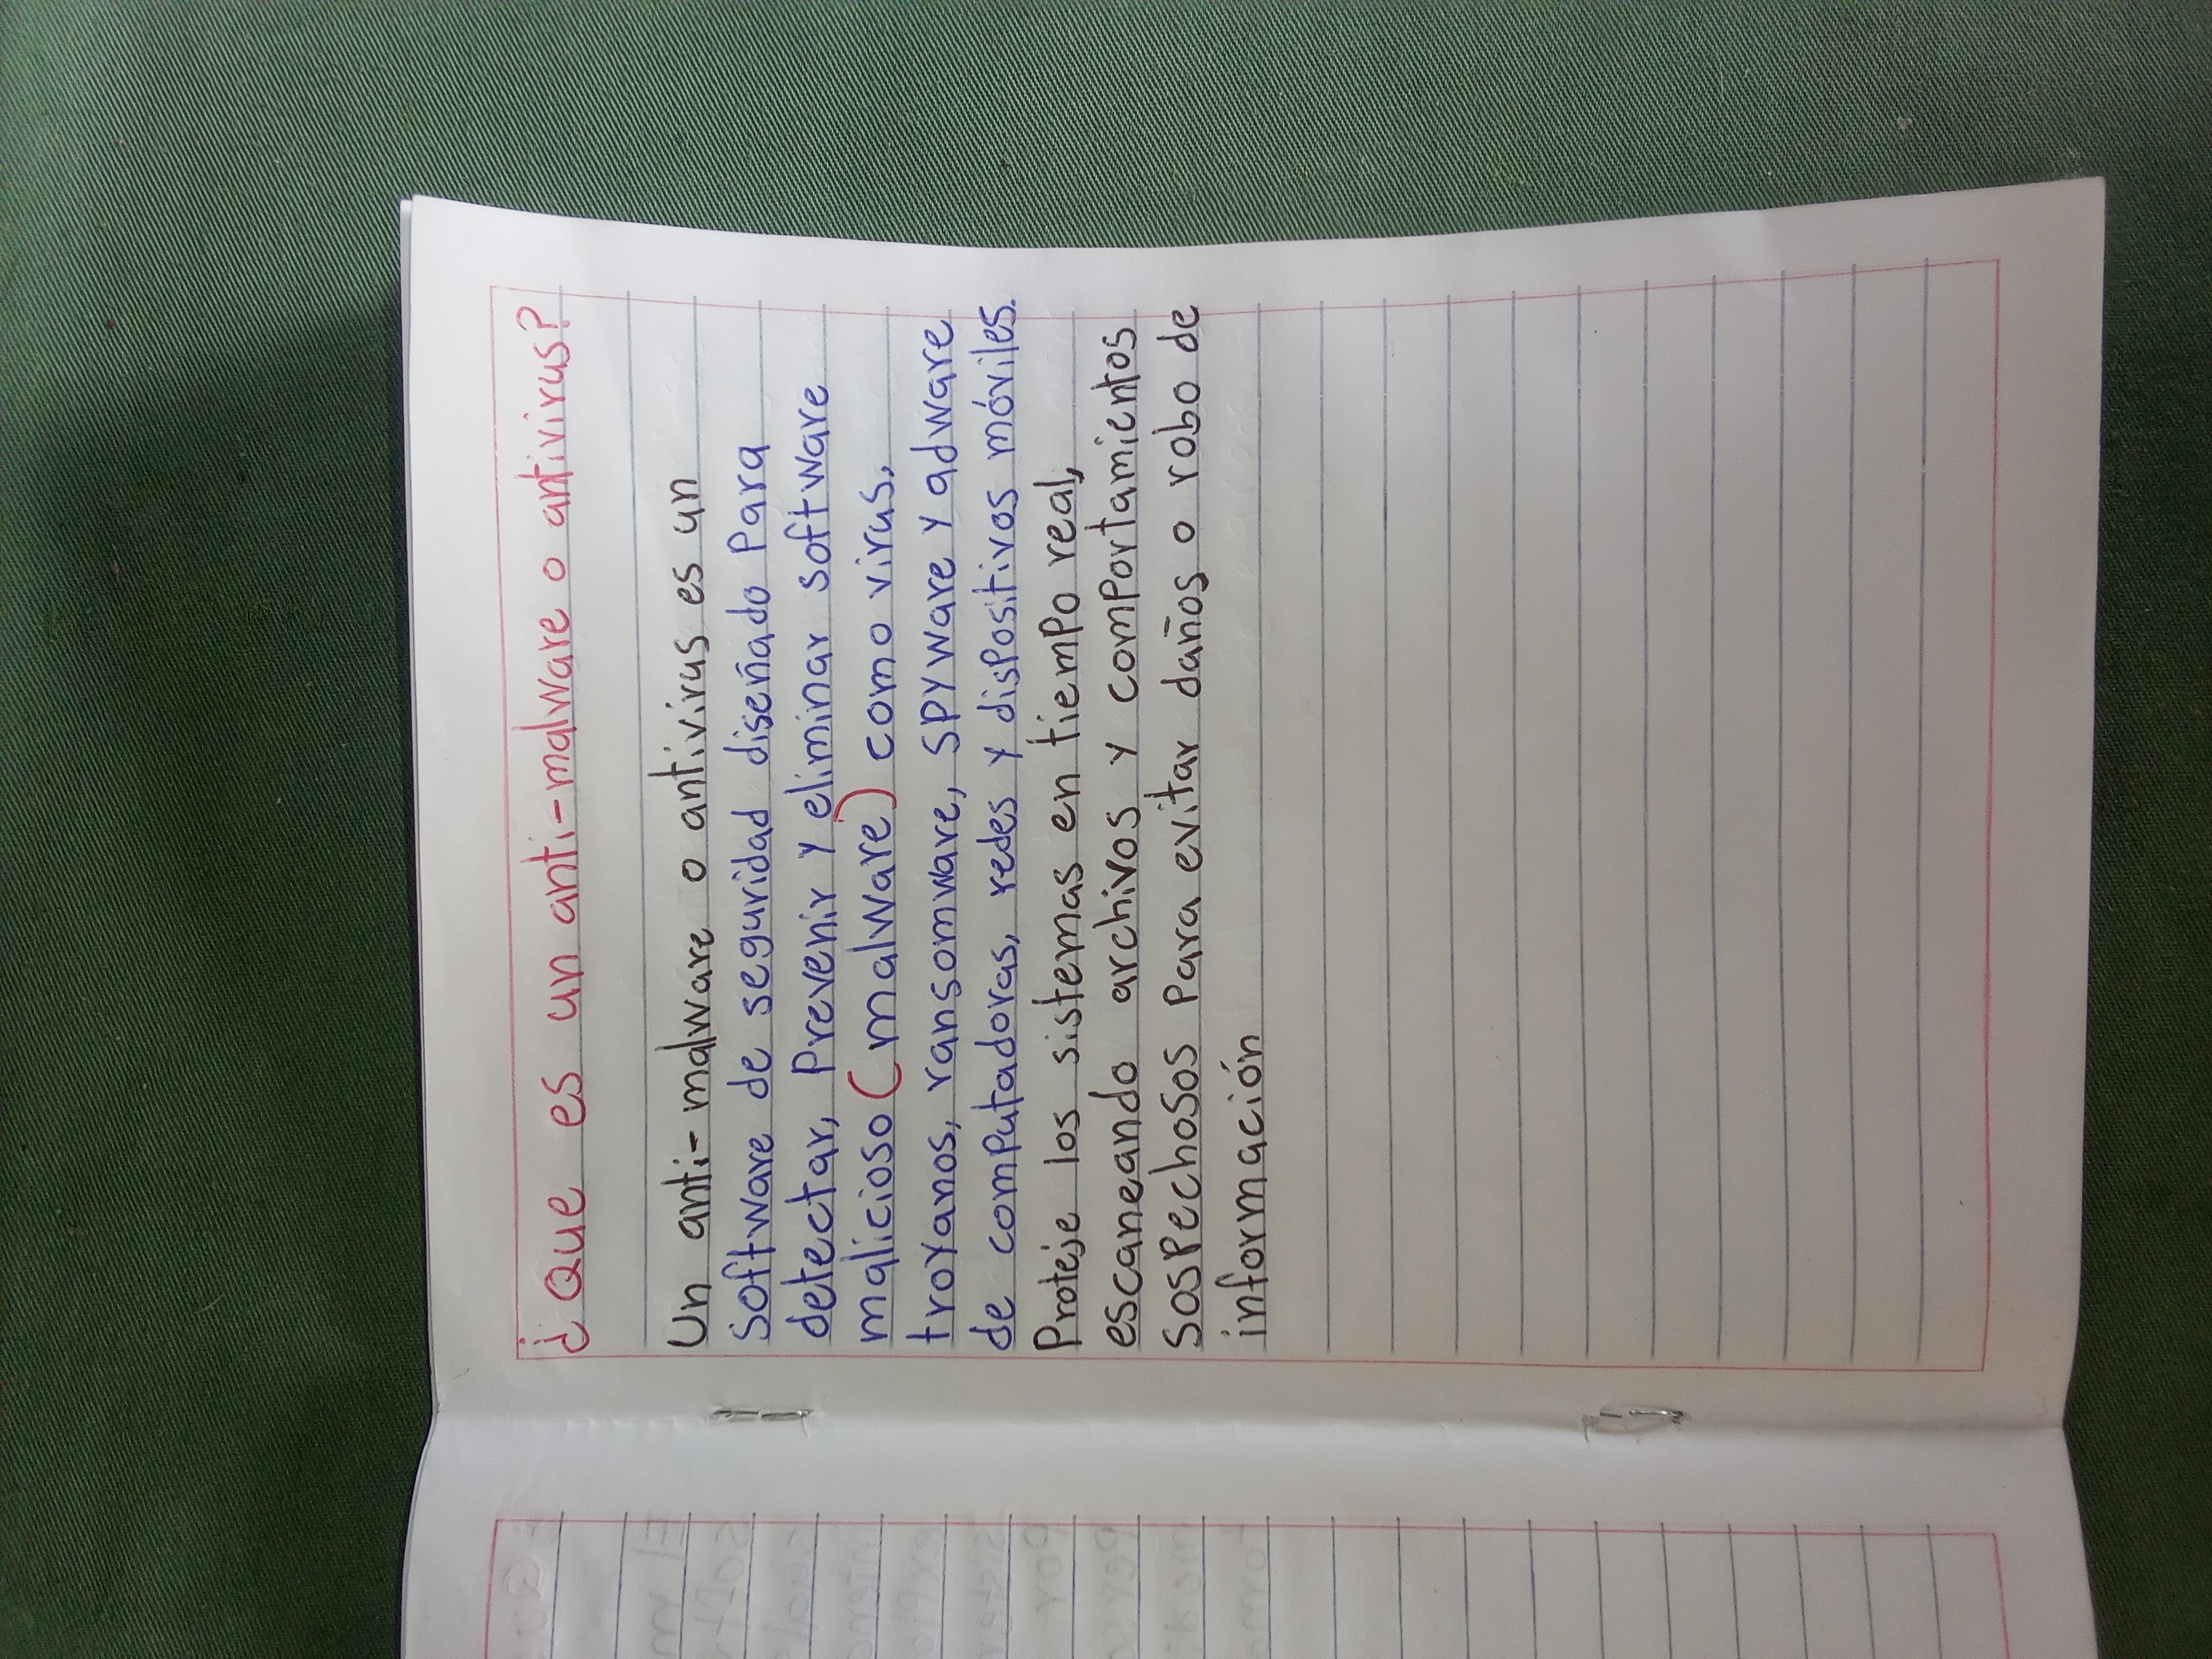 ¿Que es un anti-malware o antivirus?
Un anti-malware o antivirus es un
Software de seguridad diseñado Para
detectar, Prevenir y eliminar software
malicioso (malware) como virus,
troyanos, ransomware, spyware y adware
de computadoras, redes y dispositivos móviles.
Proteje los sistemas en tiempo real,
escaneando archivos y comportamientos
sospechosos Para evitar daños o robo de
información